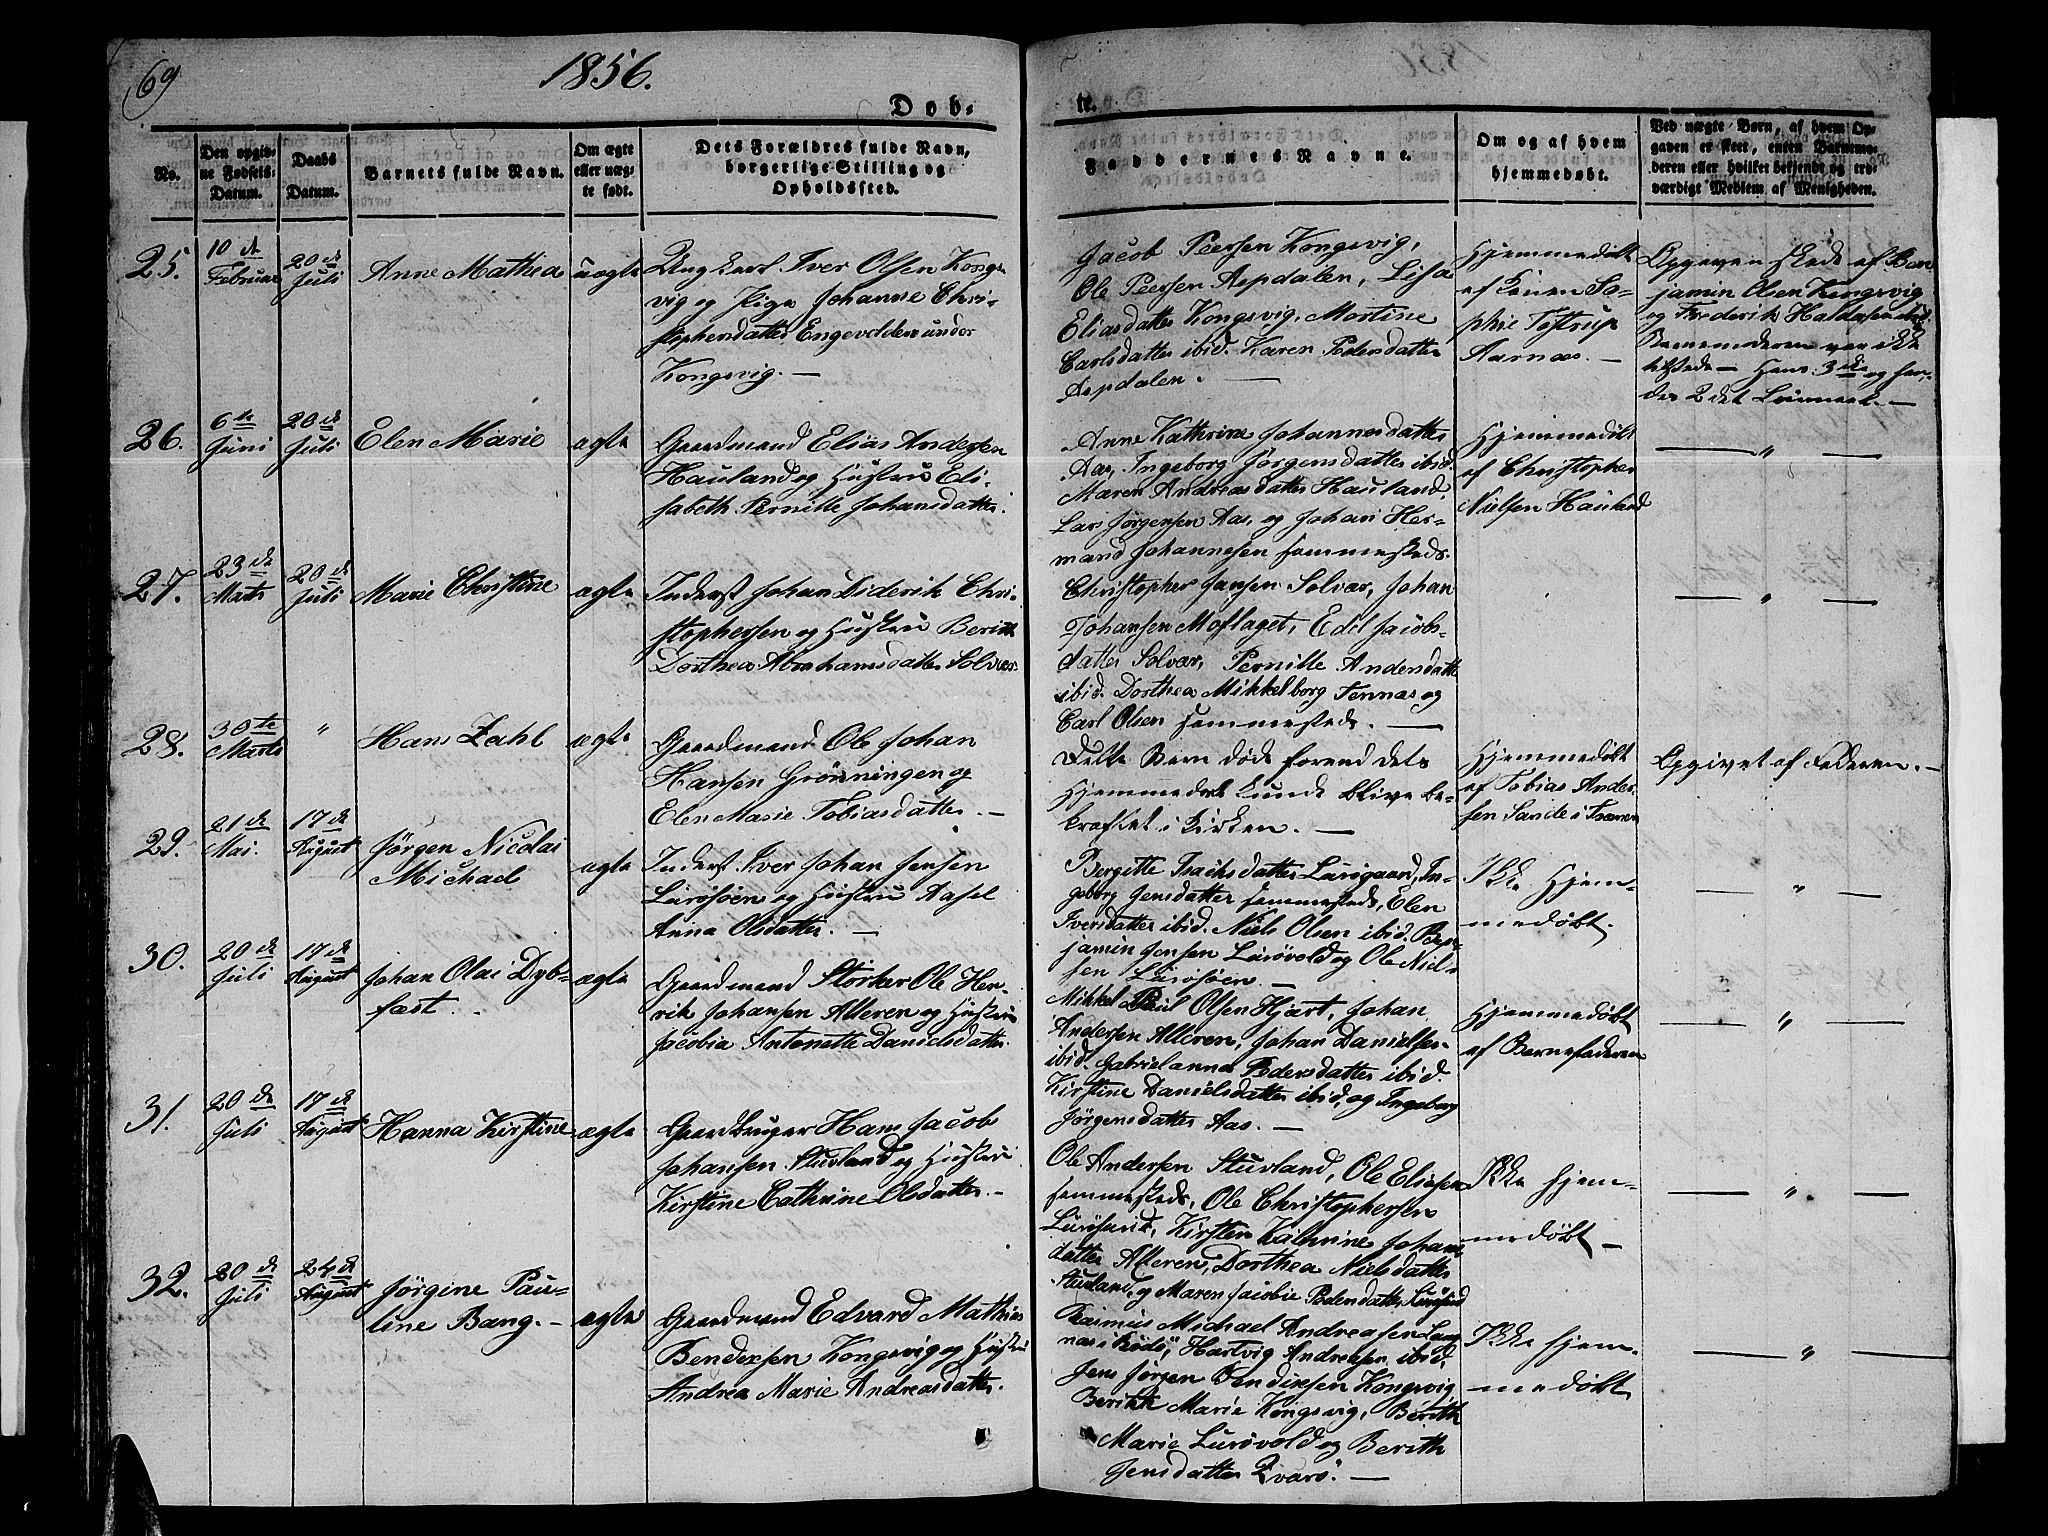 69
1856.
Dob-
te.
No.
Den opgiv-
ne Fødsels-
Datum.
Daabs
Datum.
Barnets fulde Navn.
Om ægte
eller uæg-
te født.
Dets Forældres fulde Navn,
borgerlige Stilling og
Opholdssted.
Faddernes Navne.
Om og af hvem
hjemmedøbt.
Ved uægte Børn, af hvem Op-
gaven er skeet, enten Barnemo-
deren eller hvilket bekjendt og tro-
værdigt Medlem af Menigheden.
25.
10de
Februar
20de
Juli
Anne Mathea
uægte
Ungkarl Iver Olsen Kongs-
vig og Pige Johanne Chri-
stophersdatter Engevolden under
Kongsvig. —
Jacob Peersen Kongsvig,
Ole Peersen Aspdalen, Lisa
Eliasdatter Kongsvig, Martine
Carlsdatter ibid. Karen Pedersdatter
Aspdalen. —
Hjemmedøbt
af Sø-
phie Toftrup
Aarnæs. —
Opgaven skede af Ben-
jamin Olsen Kongsvig
og Frederik
Barnemoderen var ikke
tilstede — Hans 3die og hen-
des 2det Leiermaal. —
26.
6te
Juni
20de
Juli
Elen Marie
ægte
Gaardmand Elias Andersen
Hauland og Hustru Eli-
sabeth Pernille Johansdatter.
Anne Kathrine Johannesdatter
Aas, Ingeborg Jørgensdatter ibid.
Maren Andreasdatter Hauland,
Lars Jørgensen Aas, og Johan Her-
mand Johannesen sammesteds.
Hjemmedøbt
af Christopher
Nielsen Hauland
— " —
27.
23de
Marts
20de
Juli
Marie Christine
ægte
Inderst Johan Diderik Chri-
stophersen og Hustru Berith
Dorthea Abrahamsdatter Solvær.
Christopher Jansen Solvær, Johan
Johansen Moflaget, Edel Jacobs-
datter Solvær, Pernille Andersdatter
ibid. Dorthea Mikkelborg Tennæs og
Carl Olsen sammesteds. —
— " —
28.
30te
Marts
"
Hans Zahl
ægte
Gaardmand Ole Johan
Hansen Grønningen og
Elen Marie Tobiasdatter. —
Dette Barn døde forend dets
Hjemmedaab kunde blive be-
kræftet i Kirken. —
Hjemmedøbt
af Tobias Ander-
sen Sande i Trænen
Opgivet af Faderen. —
29.
21de
Mai.
17de
August
Jørgen Nicolai
Michael
ægte
Inderst Iver Johan Jensen
Lurøsøen og Hustru Aasel
Anna Olsdatter. —
Bergitte Isachsdatter Lurøgaard, In-
geborg Jensdatter sammesteds, Elen
Iversdatter ibid. Niels Olsen ibid. Ben-
jamin Jensen Lurøvold og Ole Niel-
sen Lurøsøen. —
Ikke Hjem-
medøbt.
— " —
30.
20de
Juli
17de
August
Johan Olai Dyb-
fæst.
ægte
Gaardmand Storker Ole Hen-
rik Johansen Alteren og Hustru
Jacobia Antonette Danielsdatter.
Mikkel Paul Olsen Hjart, Johan
Andersen Alteren, Johan Danielsen
ibid. Gabrielanna Pedersdatter ibid.
Kirstine Danielsdatter ibid, og Ingeborg
Jørgensdatter Aas. —
Hjemmedøbt
af Barnefaderen
— " —
31.
20de
Juli
17de
August
Hanna Kirstine
ægte
Gaardbruger Hans Jacob
Johansen Stuvland og Hustru
Kirstine Cathrine Olsdatter. —
Ole Andersen Stuvland, Ole Eliasen
sammesteds, Ole Christophersen
Lurøsund, Kirsten Kathrine Johans-
datter Alteren, Dorthea Nielsdatter
Stuvland, og Maren Jacobie Pedersdatter Lurøsund
Ikke hjem-
medøbt —
— " —
32.
20de
Juli
24de
August
Jørgine Pau-
line Bang. —
ægte
Gaardmand Edvard Mathias
Bendixsen Kongsvig og Hustru
Andrea Marie Andreasdatter.
Rasmus Michael Andreasen Lang-
næs i Rødø, Hartvig Andreasen ibid.
Jens Jørgen Bendixsen Kongsvig
Berith Marie Kongsvig, Berith
Marie Lurøvold og Berith
Jensdatter Qvarø. —
Ikke hjem-
medøbt
— " —